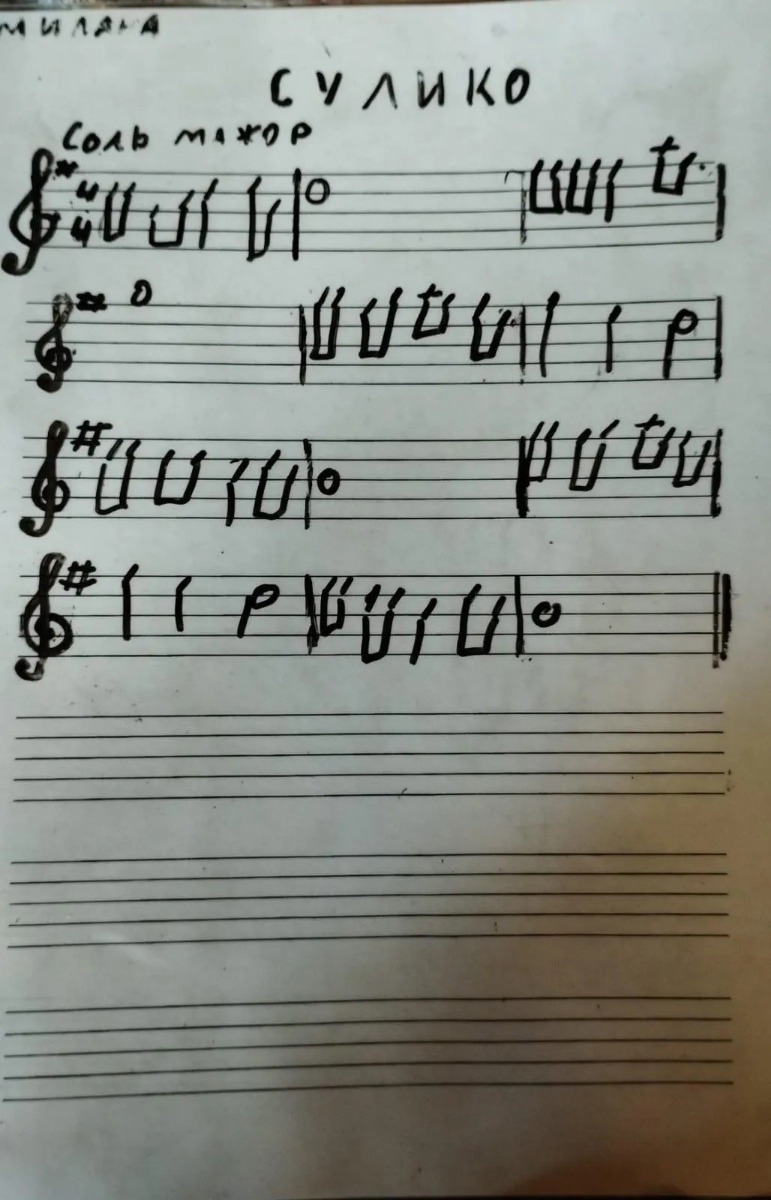 МИЛАНА
СУЛИКО
Соль мажор
4
4